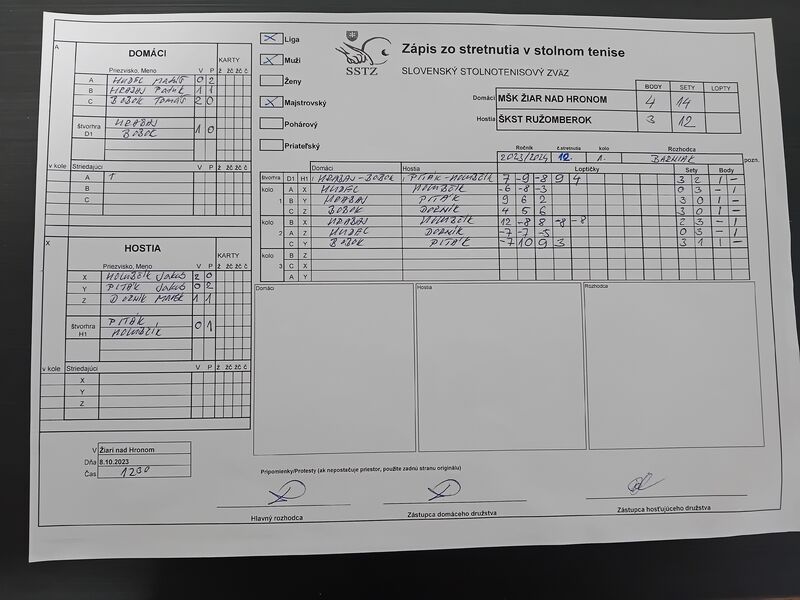 Zápis zo stretnutia v stolnom tenise
SLOVENSKÝ STOLNOTENISOVÝ ZVÄZ
SSTZ
X Liga
X Muži
Ženy
X Majstrovský
Pohárový
Priateľský
BODY SETY LOPTY
Domáci MŠK ŽIAR NAD HRONOM 4 14
Hostia ŠKST RUŽOMBEROK 3 12
Ročník č.stretnutia kolo Rozhodca
2023/2024 12. 1. BARNIAK pozn.
A
DOMÁCI
KARTY
Priezvisko, Meno V P ž žč žč č
A HUDEC 0 2
B HRABAJ 1 1
C BOBOK TOMÁŠ 2 0
štvorhra D1 HRABAJ 1 0
BOBOK
v kole Striedajúci V P ž žč žč č
A
B
C
X
HOSTIA
KARTY
Priezvisko, Meno V P ž žč žč č
X HOLUBČÍK Jakub 2 0
Y PITÁK Jakub 0 2
Z DORNÍK MAREK 1 1
štvorhra H1 PITÁK 0 1
HOLUBČÍK
v kole Striedajúci V P ž žč žč č
X
Y
Z
Domáci Hostia Loptičky Sety Body
štvorhra D1 H1 HRABAJ-BOBOK PITÁK-HOLUBČÍK 7 -9 -8 9 4 3 2 1 -
kolo A X HUDEC HOLUBČÍK -6 -8 -3 0 3 - 1
1 B Y HRABAJ PITÁK 9 6 2 3 0 1 -
C Z BOBOK DORNÍK 4 5 6 3 0 1 -
kolo B X HRABAJ HOLUBČÍK 12 -8 8 -8 -8 2 3 - 1
2 A Z HUDEC DORNÍK -7 -7 -5 0 3 - 1
C Y BOBOK PITÁK -7 10 9 3 3 1 1 -
kolo B Z
3 C X
A Y
Domáci Hostia Rozhodca
V Žiari nad Hronom
Dňa 8.10.2023
Čas 12 30
Pripomienky/Protesty (ak nepostačuje priestor, použite zadnú stranu originálu)
Hlavný rozhodca
Zástupca domáceho družstva
Zástupca hosťujúceho družstva